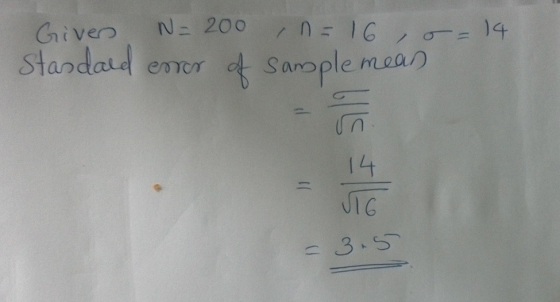 Given N = 200 , n = 16 , σ = 14
Standard error of sample mean
= σ/√n
= 14/√16
= 3.5